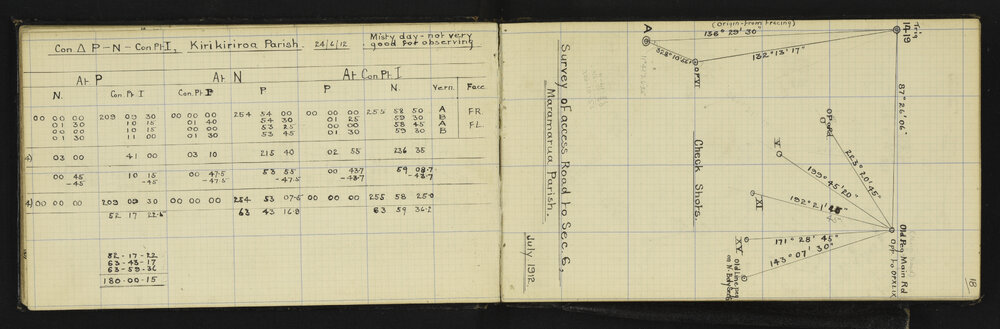 Con Δ P-N-Con Pt. I, Kirikiriroa Parish. 24/6/12 Misty day - not very
good for observing
At P At N At Con Pt I
N. Con. Pt I Con. Pt P P N. Vern. Face
00 00 00 209 09 30 00 00 00 254 54 00 00 00 00 255 58 50 A FR.
01 30 10 15 01 40 54 30 01 25 59 30 B
00 00 10 15 00 00 53 25 00 00 58 45 A FL.
01 30 11 00 01 30 53 45 01 30 59 30 B
4) 03 00 41 00 03 10 215 40 02 55 236 35
00 45 10 15 00 47.5 53 55 00 43.7 59 08.7
-45 -45 -47.5 -47.5 -43.7 -43.7
4) 00 00 00 209 09 30 00 00 00 254 53 07.5 00 00 00 255 58 25.0
52 17 22.5 63 43 16.8 63 59 36.2
52-17-22
63-43-17
63-59-36
180-00-15
Survey of access Road to Sec. 6,
Maramarua Parish.
July 1912.
Check Shots.
(Origin-from tracing)
A
136° 29' 30"
Trig
1419
OP VI
132° 13' 17"
87° 26' 06"
OP
223° 20' 45"
V
199° 45' 20"
XI
192° 21'
45"
XV
171° 28' 45"
143° 07' 30"
Old line peg
on N. Bdy
Old Peg Main Rd
Opp. to OP XLIX
18